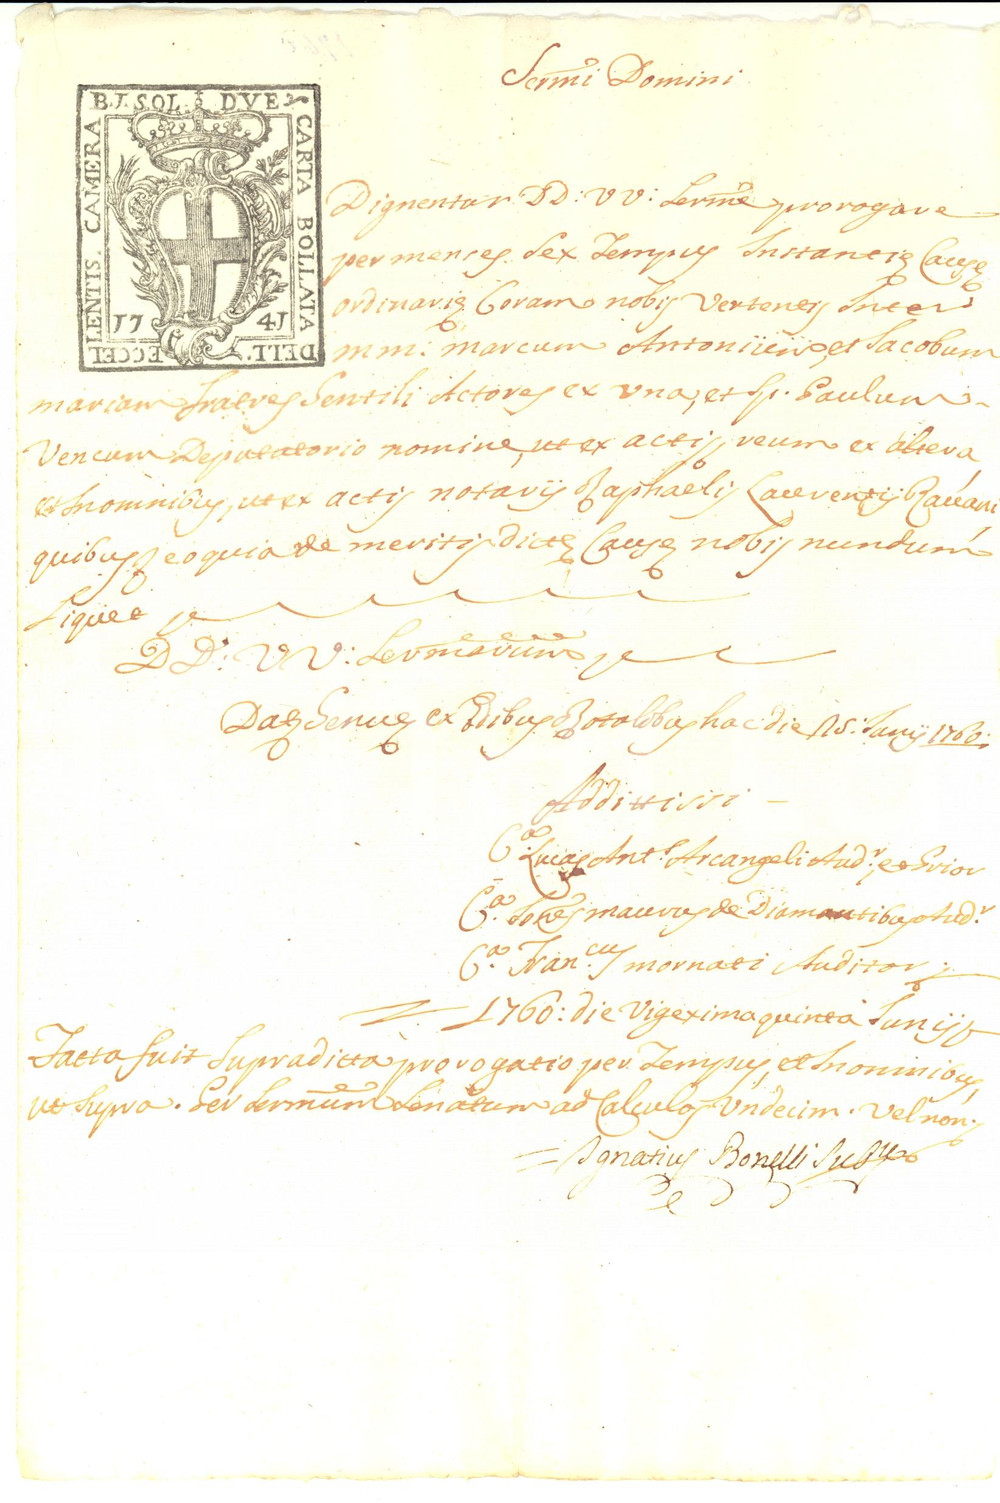 Sermi Domini
B. I. SOL. DVE
CARTA BOLLATA
DELL' ECCEL
LENTIS. CAMERA
17 41
Dignentur DD: VV: Serme prorogare
per menses sex Tempus Instantie Cause
ordinarie Coram nobis Vertentis Inter
MM: marcum Antonium, et Jacobum
mariam fratres Gentili Actores ex Una, et Sp. Paulum
Vencum Deputatorio nomine, ut ex actis reum ex altera
et Inominibus, ut ex actis notarij Raphaelis Laurentij
quibus eo quia de meritis dicte Cause nobis nundum
Liquet
DD: VV: Sermarum
Dat Genue ex Edibus Rotalibus hac die 25: Junij 1760:
Addittissi
Ca. Lucas Ant.s Arcangeli Aud.r, et Prior
Ca. Johes maurus de Diamantibus Aud.r
Ca. Fran.cus mornati Auditor
1760: die Vigexima quinta Junij
Facta fuit Supradicta prorogatio per Tempus, et Inominibus,
ut supra. Per Sermum Senatum ad Calculos Undecim. Vel non.
Ignatius Bonelli